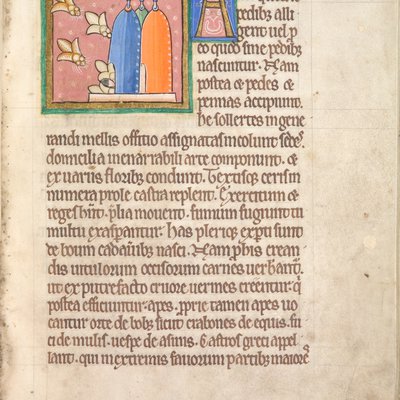 pedibus alli
gent uel ꝑ
eo quod sine pedibꝰ
nascuntur. Nam
postea & pedes &
pennas accipiunt.
He sollertes in gene
randi mellis offitio assignatas incolunt sedeˢ.
domicilia inenarrabili arte componunt. &
ex uariis floribꝫ condunt. Textisqꝫ ceris in
numera prole castra replent. Exercitum &
reges hn̄t. p̄lia mouent. fumum fugiunt tu
multu exasperantur. Has pleriqꝫ exꝑti sunt
de boum cadaueribꝫ nasci. Nam ꝓ his crean
dis uitulorum occisorum carnes uerberant᷑.
ut ex putrefacto cruore uermes creentur. q̇
postea efficiuntur apes. ꝓprie tamen apes uo
cantur orte de bobꝫ. sicut crabones de equis. fu
ci de mulis. uespe de asinis. Castros greci appel
lant. qui in extremis fauorum partibꝫ maioreˢ